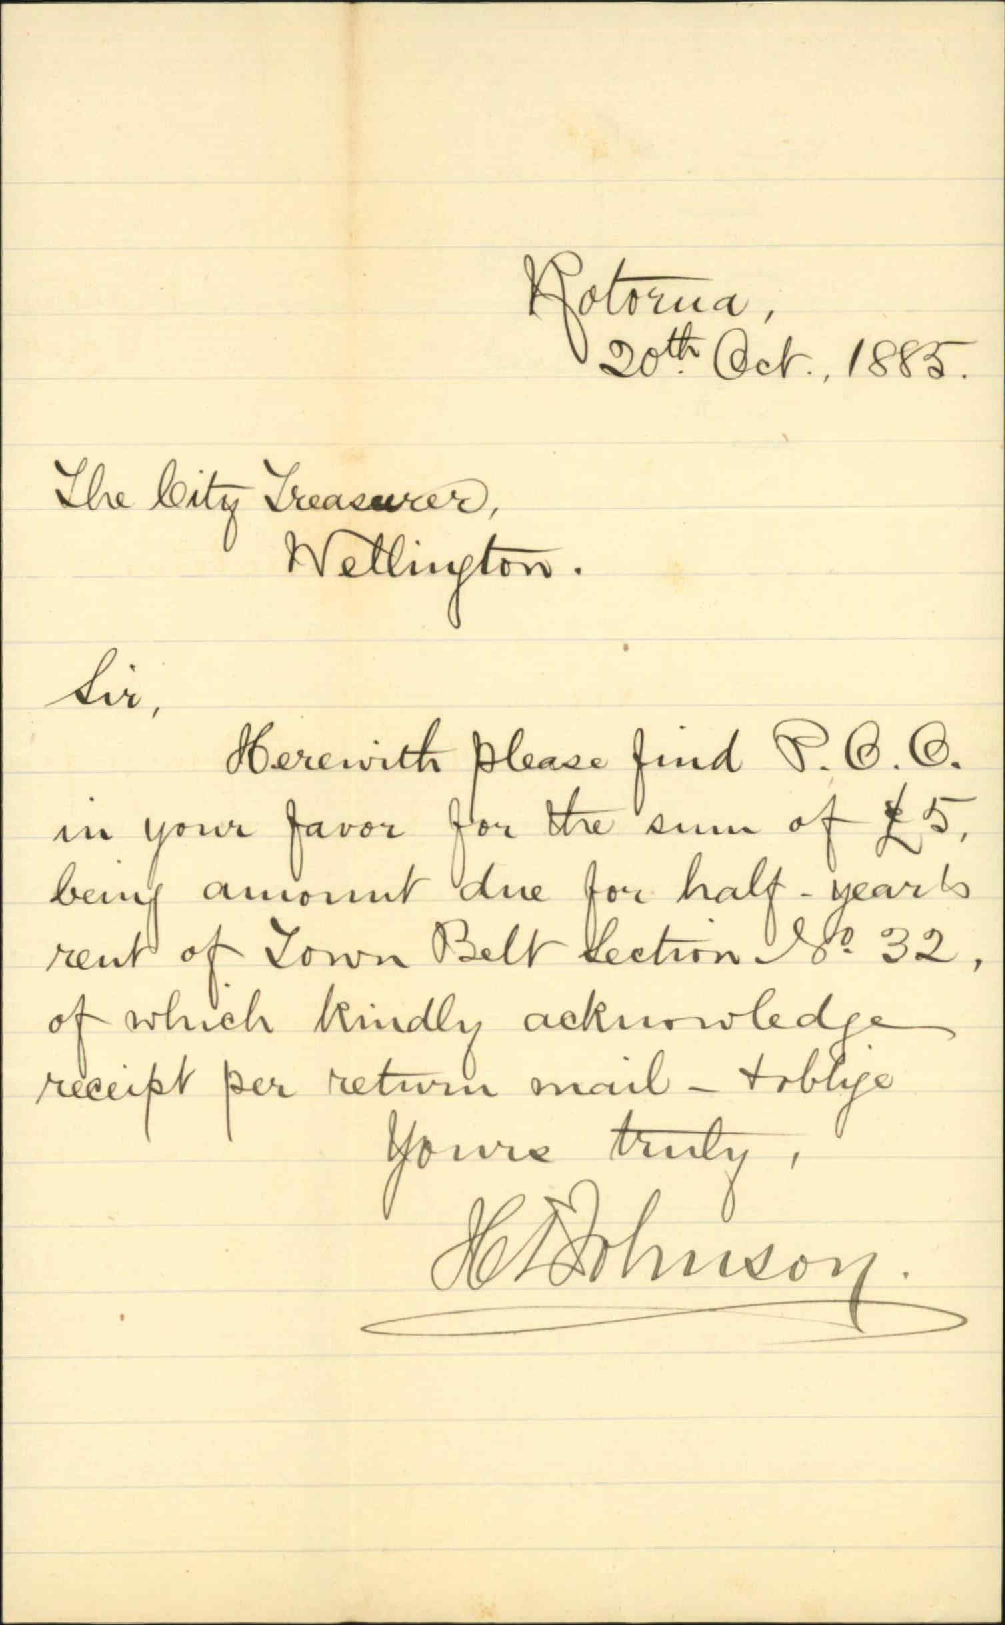 Rotorua,
20th. Oct., 1885.
The City Treasurer,
Wellington.
Sir,
Herewith please find P. O. O.
in your favor for the sum of £5,
being amount due for half-year's
rent of Town Belt Section No. 32,
of which kindly acknowledge
receipt per return mail - & oblige
Yours truly,
H T Johnson.